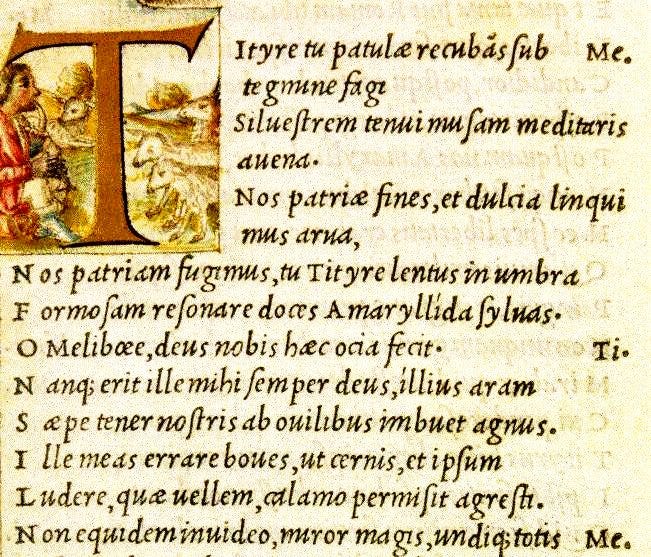 Tityre tu patulæ recubãs sub Me.
tegmine fagi
Siluestrem tenui musam meditaris
auena.
Nos patriæ fines, et dulcia linqui
mus arua,
Nos patriam fugimus, tu Tityre lentus in umbra
Formosam resonare doces Amaryllída syluas.
O Melibœe, deus nobis hæc ocia fecit. Ti.
Nanq; erit ille mihi semper deus, illius aram
Sæpe tener nostris ab ouilibus imbuet agnus.
Ille meas errare boues, ut cernis, et ipsum
Ludere, quæ uellem, calamo permisit agresti.
Non equidem inuideo, miror magis, undiq; totis Me.